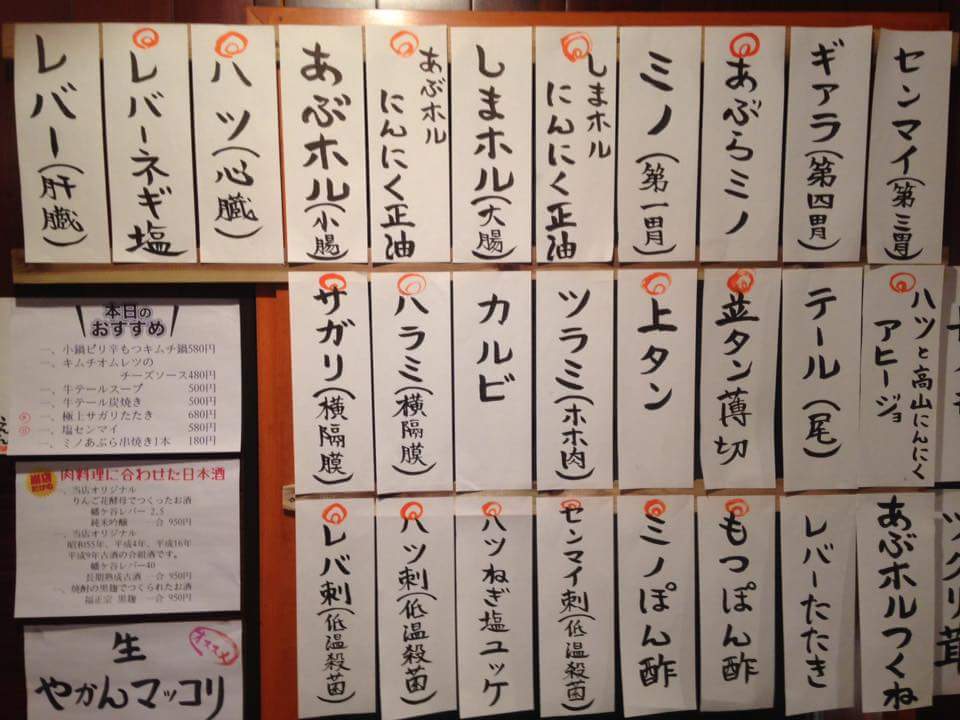 センマイ(第三胃)
ギアラ(第四胃)
あぶらミノ
ミノ(第一胃)
しまホル
にんにく正油
しまホル(大腸)
あぶホル
にんにく正油
あぶホル(小腸)
ハツ(心臓)
レバーネギ塩
レバー(肝臓)
ハツと高山にんにく
アヒージョ
テール(尾)
並タン薄切
上タン
ツラミ(ホホ肉)
カルビ
ハラミ(横隔膜)
サガリ(横隔膜)
あぶホルつくね
レバーたたき
もつぽん酢
ミノぽん酢
センマイ刺(低温殺菌)
ハツねぎ塩ユッケ
ハツ刺(低温殺菌)
レバ刺(低温殺菌)
本日の
おすすめ
一、小鍋ピリ辛もつキムチ鍋580円
一、キムチオムレツの
チーズソース480円
一、牛テールスープ 500円
一、牛テール炭焼き 500円
一、極上サガリたたき 680円
一、塩センマイ 580円
一、ミノあぶら串焼き1本 180円
肉料理に合わせた日本酒
一、当店オリジナル
りんご花酵母でつくったお酒
幡ケ谷レバー2.5
純米吟醸 一合 950円
一、当店オリジナル
昭和55年、平成4年、平成16年
平成9年古酒の合組酒です。
幡ケ谷レバー40
長期熟成古酒 一合 950円
一、焼酎の黒麹でつくられたお酒
福正宗 黒麹 一合 950円
オススメ
生
やかんマッコリ